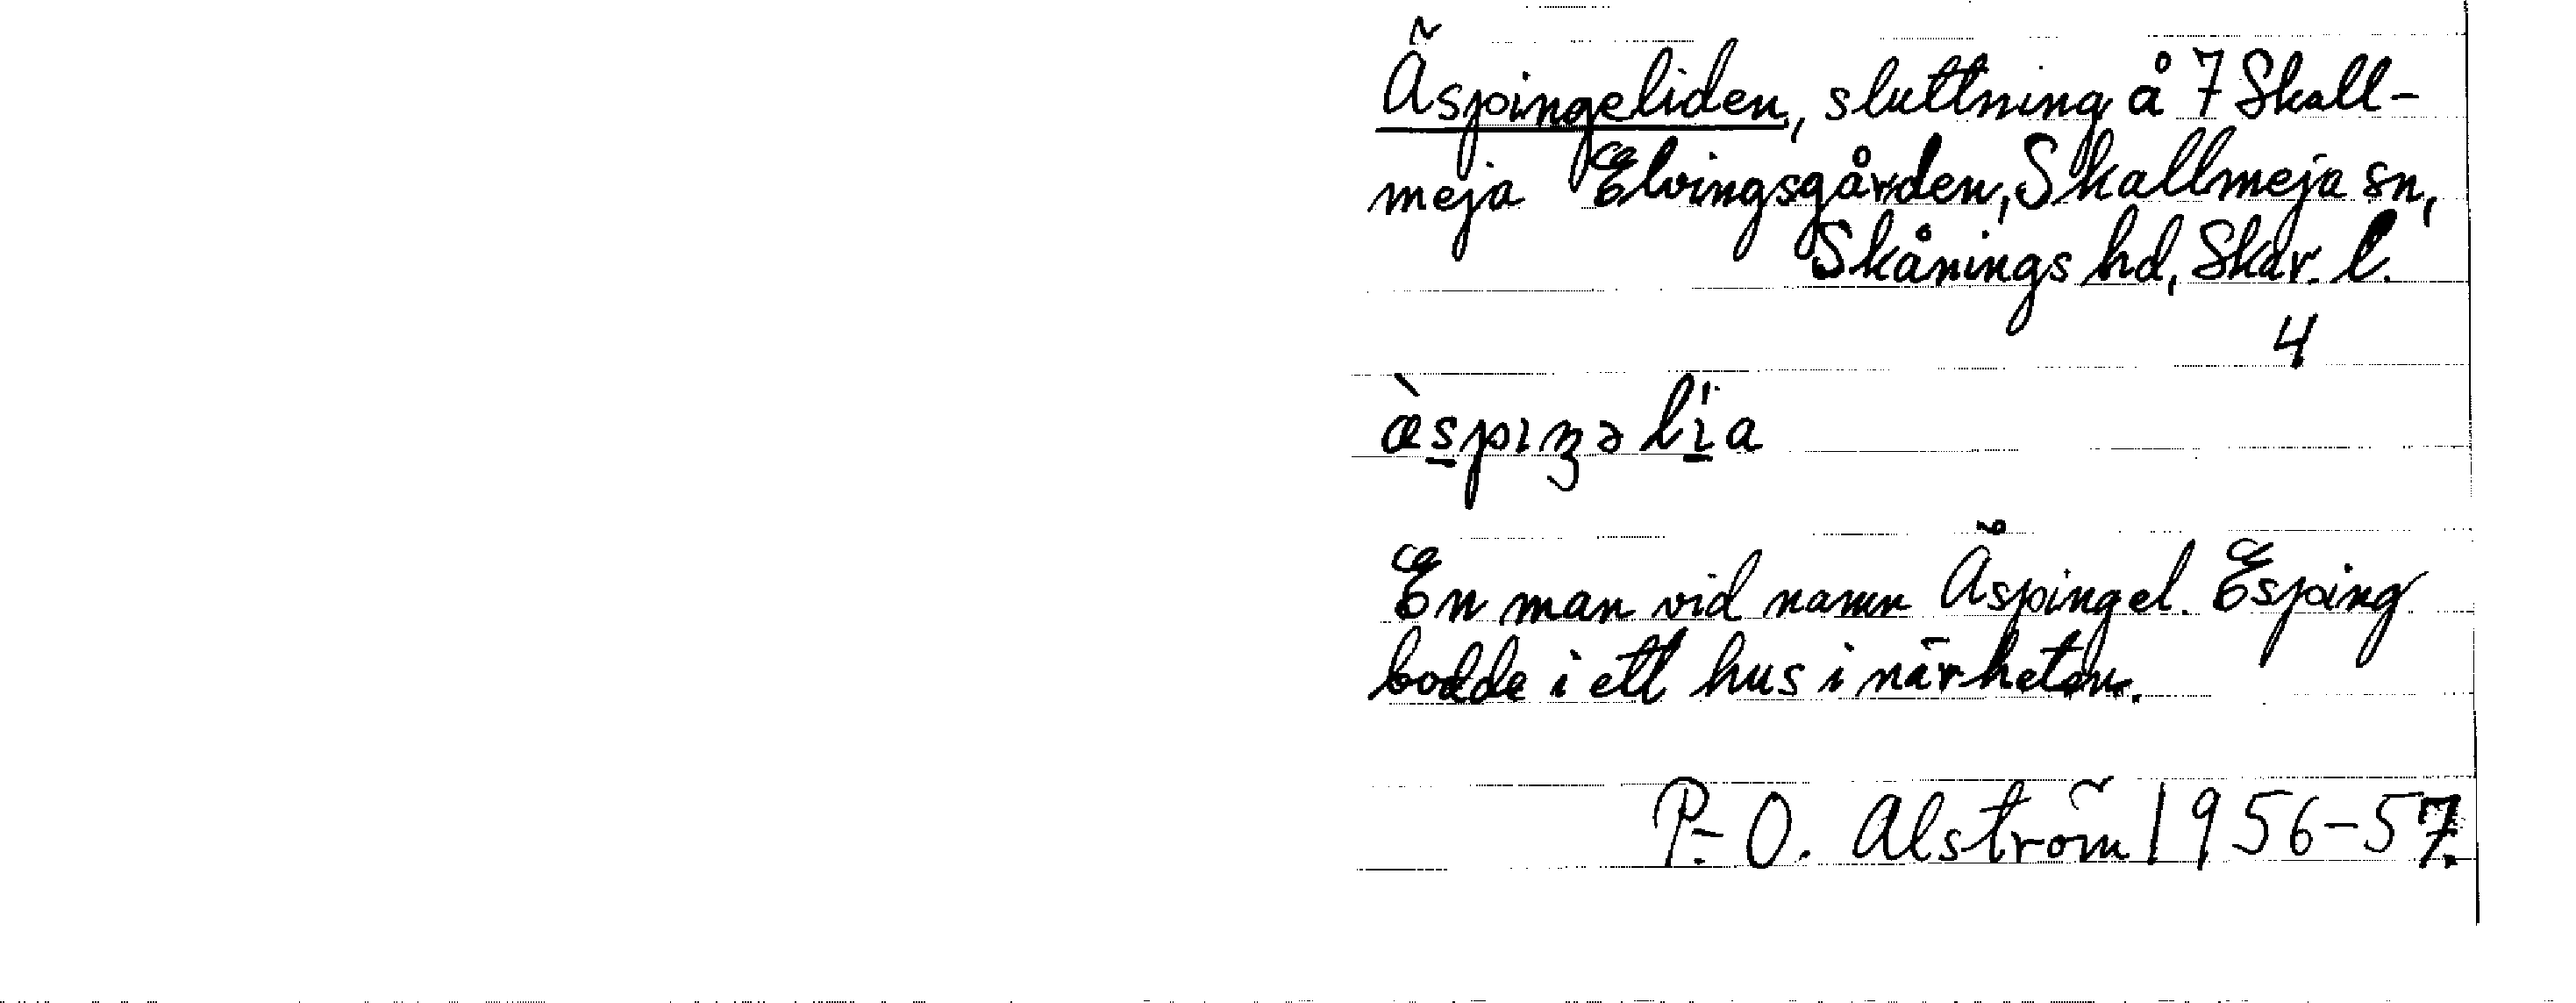 Äspingeliden, sluttning å 7 Skall-
meja Elvingsgården, Skallmeja sn,
Skånings hd, Skar. l.
4
En man vid namn Äspingel. Esping
bodde i ett hus i närheten.
P.-O. Alström 1956-57.